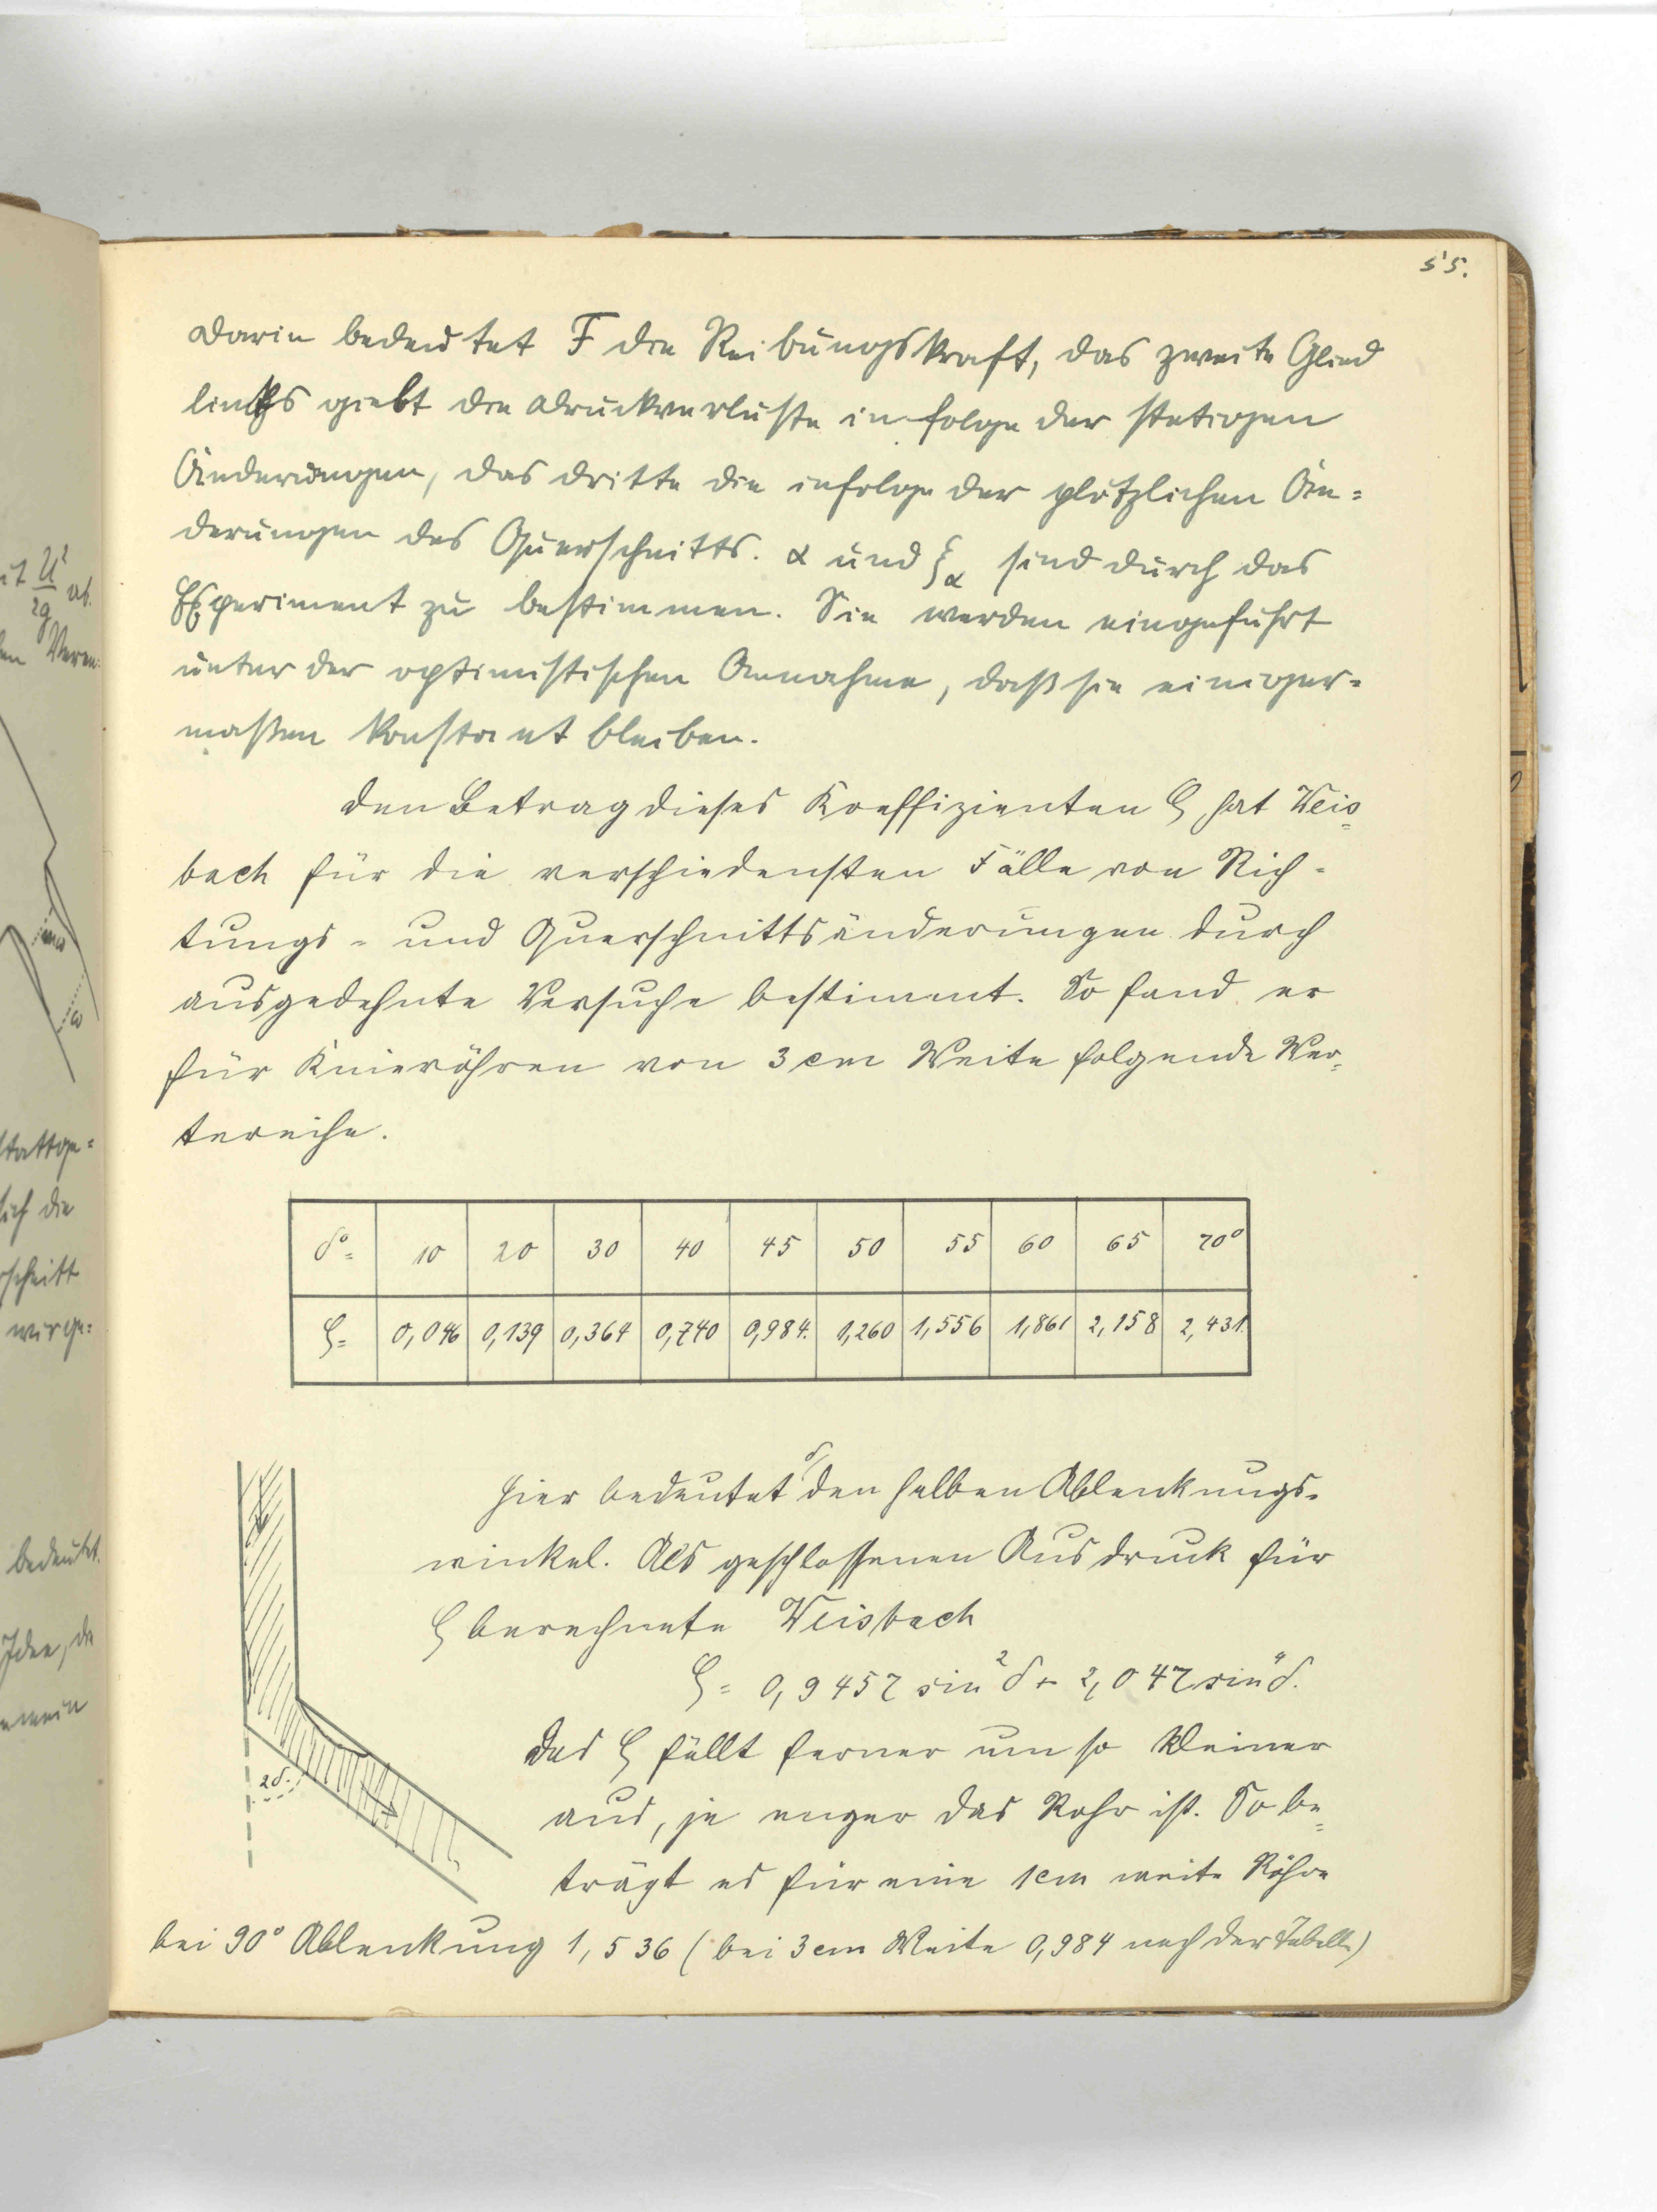 55.
Darin bedeutet F die Reibungskraft, das zweite Glied
links giebt die Druckverluste infolge der stetigen
Änderungen, das dritte die infolge der plötzlichen Än=
derungen des Querschnitts. α und ξα sind durch das
Experiment zu bestimmen. Sie werden eingeführt
unter der optimistischen Annahme, daß sie einiger=
maßen konstant bleiben.
Den Betrag dieses Koeffizienten ζ hat Weis=
bach für die verschiedensten Fälle von Rich-
tungs- und Querschnittsänderungen durch
ausgedehnte Versuche bestimmt. So fand er
für Knieröhren von 3 cm Weite folgende Wer=
tereihe.
δ°= 10 20 30 40 45 50 55 60 65 70°
ζ= 0,046 0,139 0,364 0,740 0,984. 1,260 1,556 1,861 2,158 2,431.
Hier bedeutet δ den halben Ablenkungs-
winkel. Als geschlossenen Ausdruck für
ζ berechnete Weisbach
ζ = 0,9457 sin²δ + 2,047 sin⁴δ.
Das ζ fällt ferner um so kleiner
aus, je enger das Rohr ist. So be=
trägt es für eine 1cm weite Röhre
bei 90° Ablenkung 1,536 (bei 3 cm Weite 0,984 nach der Tabelle)
2δ.
it U²/2g ab.
en Veren=
stattge=
sich die
rschnitt
wir ge=
bedeutet.
Idee, die